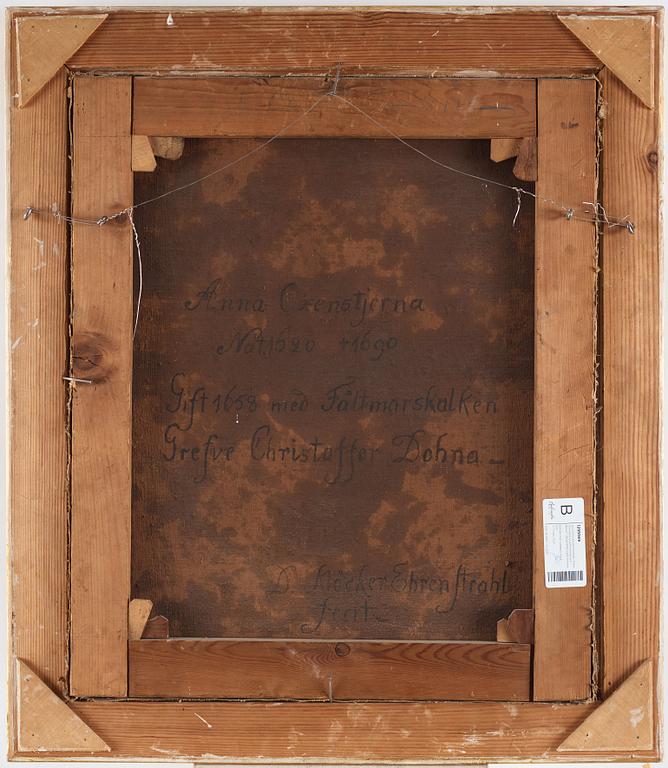 Anna Oxenstjerna
Nat 1620 +1690
Gift 1658 med Fältmarskalken
Grefve Christoffer Dohna_
D. Klöcker Ehrenstrahl
fecit
B